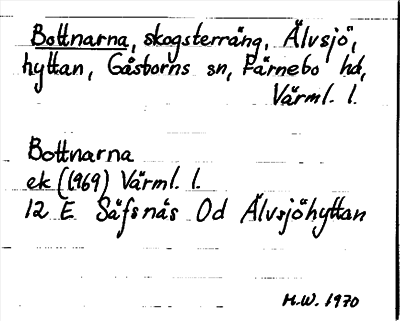 Bottnarna, skogsterräng, Älvsjö,
hyttan, Gåsborns sn, Färnebo hd,
Värml. l.
Bottnarna
ek (1969) Värml. l.
12 E Säfsnäs 0d Älvsjöhyttan
H.W. 1970